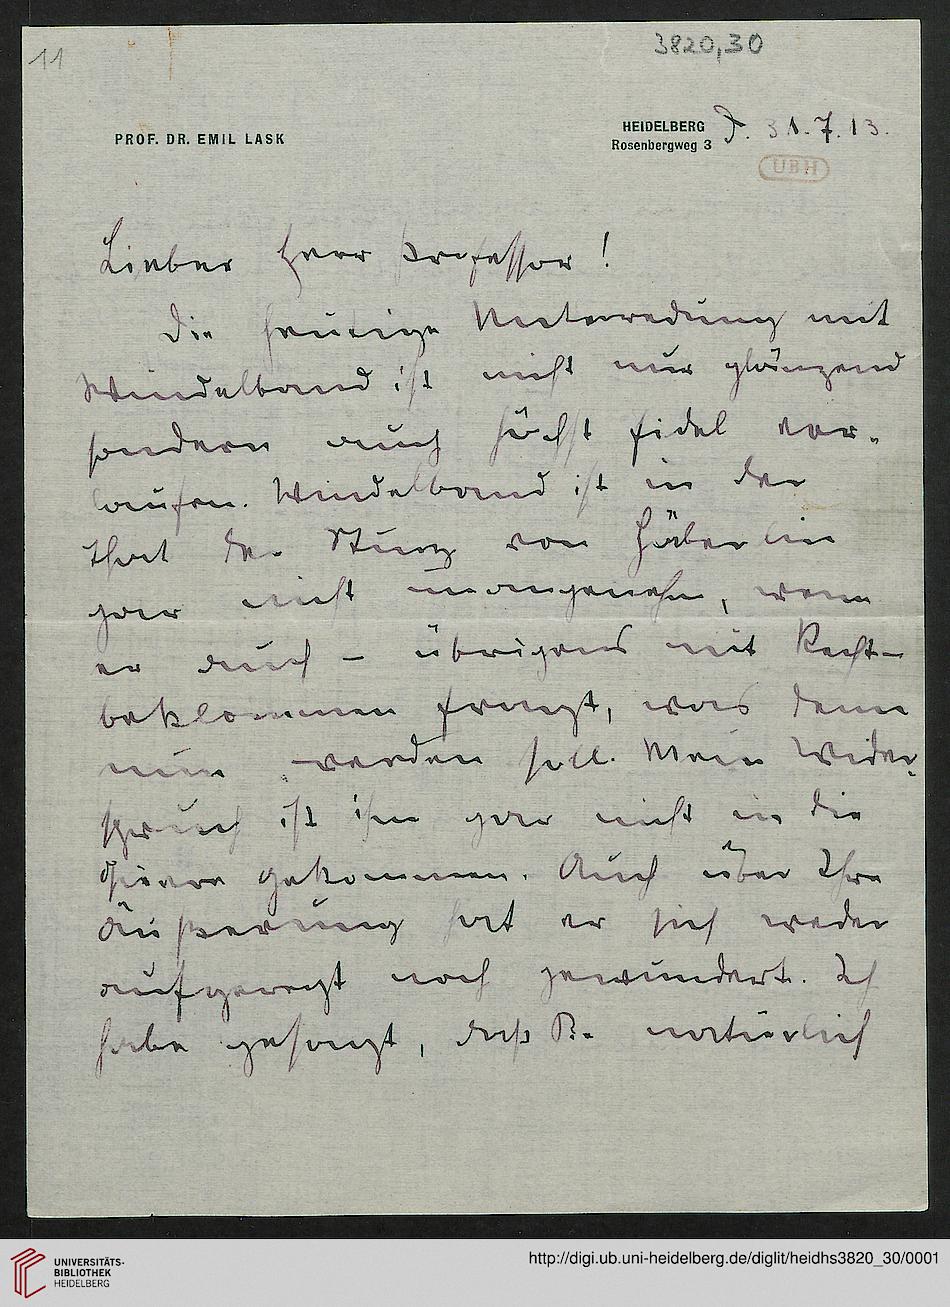 11
3820,30
PROF. DR. EMIL LASK
HEIDELBERG
Rosenbergweg 3
d. 31.7.13.
UBH
Lieber Herr Professor!
Die heutige Unterredung mit
Windelband ist nicht nur glänzend
sondern auch höchst fidel ver-
laufen. Windelband ist in der
That der Sturz von Häberlin
gar nicht unangenehm, wenn
er auch – übrigens mit Recht –
beklommen fragt, was denn
nun werden soll. Mein Wider-
spruch ist ihm gar nicht in die
Quere gekommen. Auch über Ihre
Äußerung hat er sich weder
aufgeregt noch gewundert. Ich
habe gesagt, daß natürlich
UNIVERSITÄTS-
BIBLIOTHEK
HEIDELBERG
http://digi.ub.uni-heidelberg.de/diglit/heidhs3820_30/0001